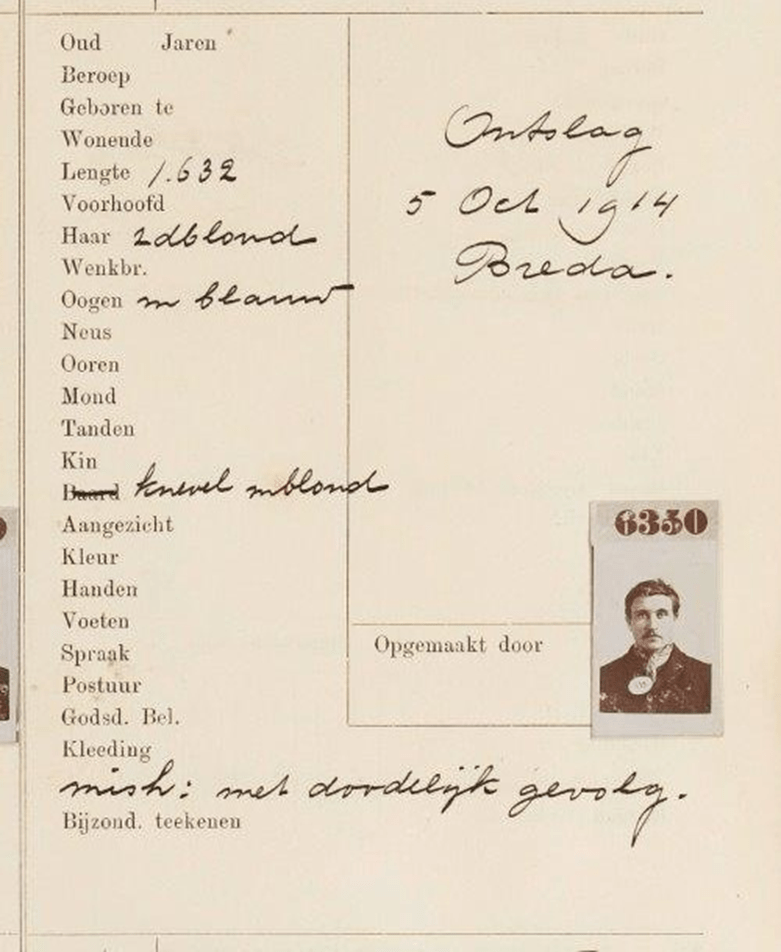 Oud Jaren
Beroep
Geboren te
Wonende
Lengte 1.632
Voorhoofd
Haar 2dblond
Wenkbr.
Oogen m blauw
Neus
Ooren
Mond
Tanden
Kin
Baard knevel mblond
Aangezicht
Kleur
Handen
Voeten
Spraak
Postuur
Godsd. Bel.
Kleeding
mish: met doodelijk gevolg.
Bijzond. teekenen
Ontslag
5 Oct 1914
Breda.
Opgemaakt door
6330